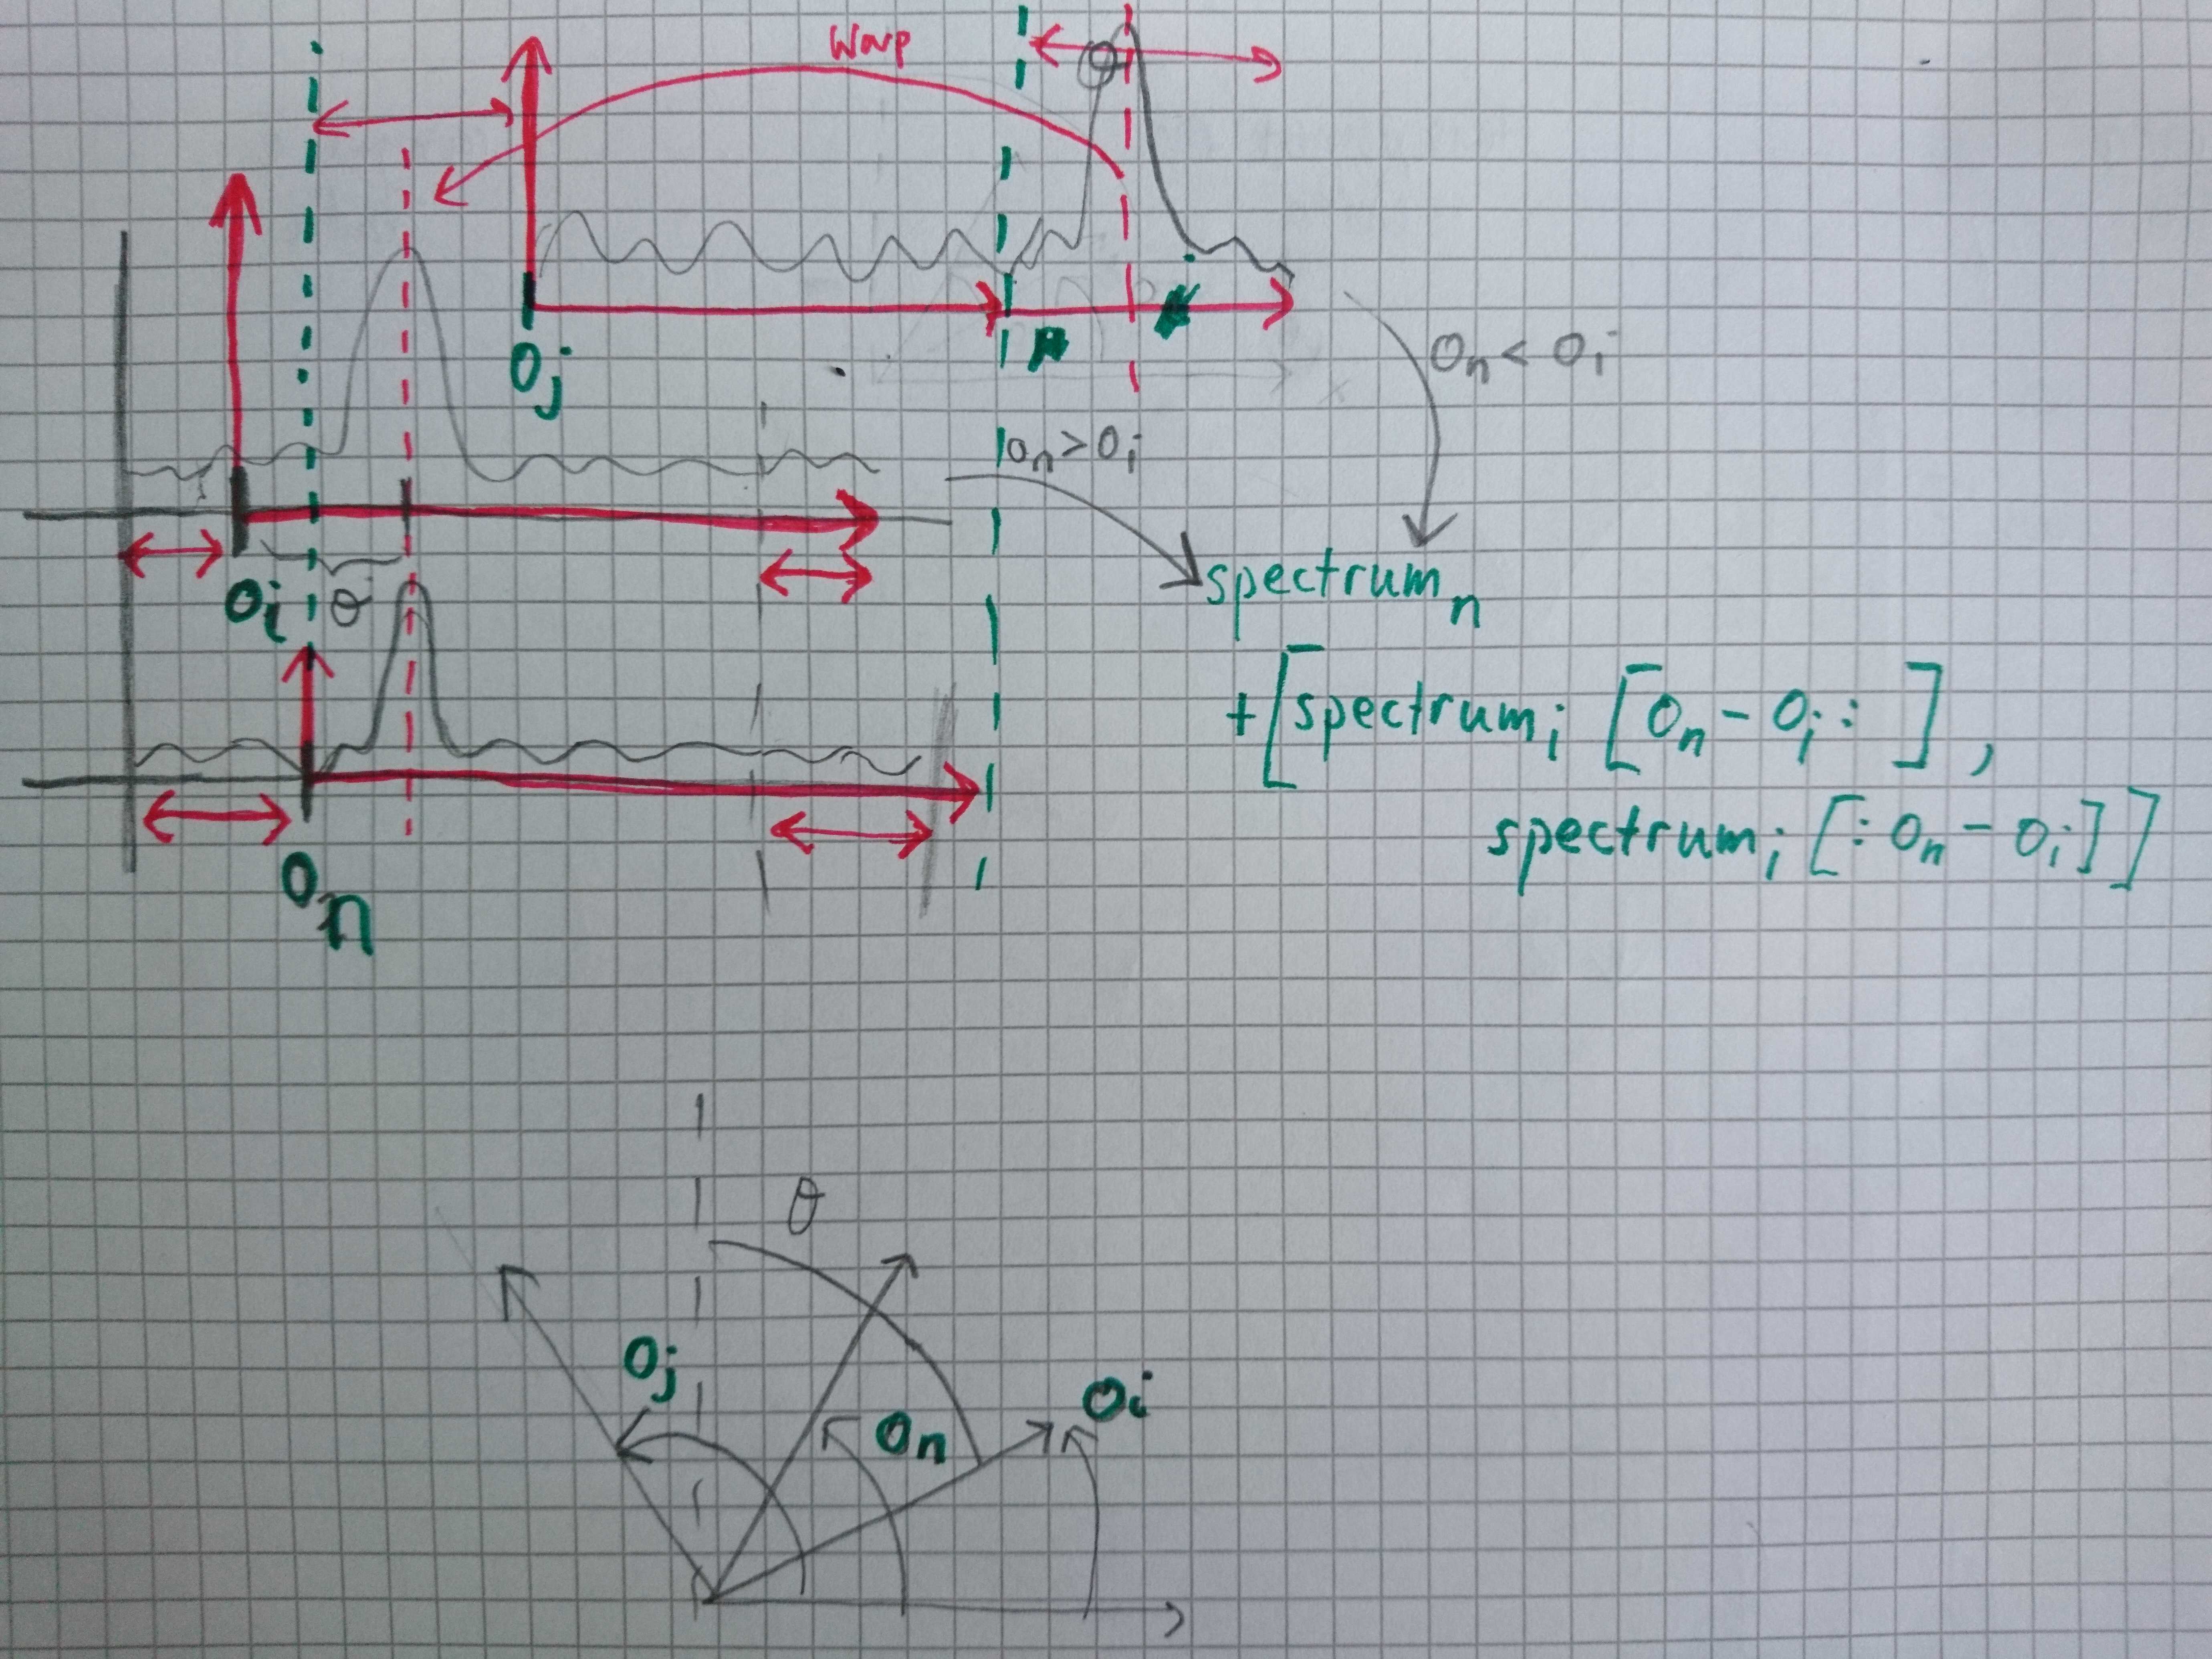 Warp
θ
O_j
O_n < O_i
O_n > O_i
O_i
θ
spectrum_n
+[spectrum_i [O_n - O_i : ] ,
spectrum_i [: O_n - O_i]]
O_n
θ
O_j
O_i
O_n